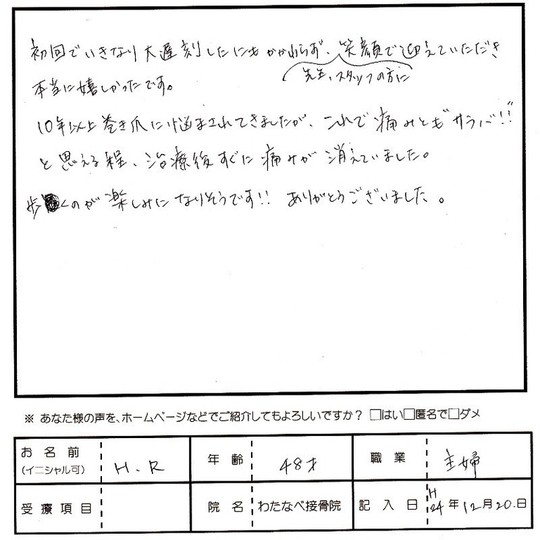 初回でいきなり大遅刻したにもかかわらず、笑顔で迎えていただき
先生、スタッフの方に
本当に嬉しかったです。
10年以上巻き爪に悩まされてきましたが、これで痛みともサラバ!!
と思える程、治療後すぐに痛みが消えていました。
歩くのが楽しみになりそうです!! ありがとうございました。
※ あなた様の声を、ホームページなどでご紹介してもよろしいですか? □はい□匿名で□ダメ
お名前 (イニシャル可) H.R 年齢 48才 職業 主婦
受療項目 院名 わたなべ接骨院 記入日 H24年12月20.日